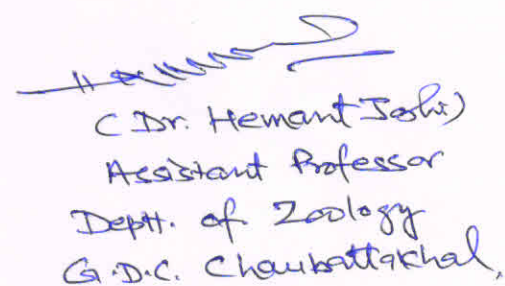 (Dr. Hemant Joshi)
Assistant Professor
Deptt. of Zoology
G.D.C. Chaubattakhal,